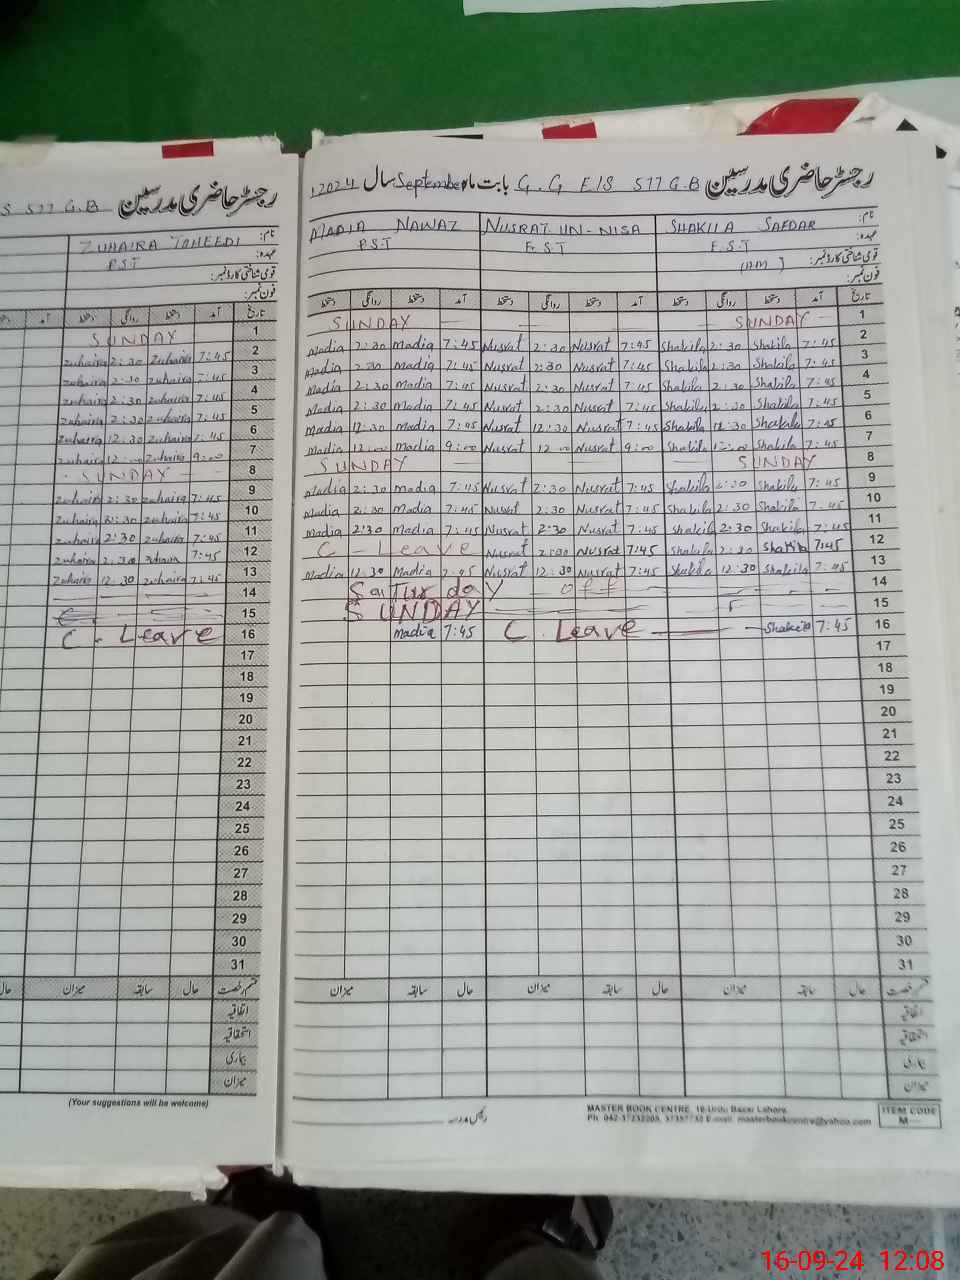 رجسٹر حاضری مدرسین
S 577 G.B
نام:
ZUHAIRA TOHEEDI
عہدہ:
P.S.T
قومی شناختی کارڈ نمبر:
فون نمبر:
تاریخ آمد دستخط روانگی دستخط آمد دستخط
1 SUNDAY
2 zuhaira 2:30 zuhaira 7:45
3 zuhaira 2:30 zuhaira 7:45
4 zuhaira 2:30 zuhaira 7:45
5 zuhaira 2:30 zuhaira 7:45
6 zuhaira 12:30 zuhaira 7:45
7 zuhaira 12:00 zuhaira 9:00
8 SUNDAY
9 zuhaira 2:30 zuhaira 7:45
10 zuhaira 2:30 zuhaira 7:45
11 zuhaira 2:30 zuhaira 7:45
12 zuhaira 2:30 7:45
13 zuhaira 12:30 zuhaira 7:45
14
15
16 C. Leave
17
18
19
20
21
22
23
24
25
26
27
28
29
30
31
قسم رخصت حال سابقہ میزان حال
اتفاقیہ
استحقاقیہ
بیماری
میزان
(Your suggestions will be welcome)
رجسٹر حاضری مدرسین G.G E/S 577 G.B بابت ماہ September سال 2024
نام: SHAKILA SAFDAR NUSRAT UN-NISA MADIA NAWAZ
عہدہ: E.S.T E.S.T P.S.T
قومی شناختی کارڈ نمبر: (HM)
فون نمبر:
تاریخ آمد دستخط روانگی دستخط آمد دستخط روانگی دستخط آمد دستخط روانگی دستخط
SUNDAY SUNDAY 1
Madia 2:30 Madia 7:45 Nusrat 2:30 Nusrat 7:45 Shakila 2:30 Shakila 7:45 2
Madia 2:30 Madia 7:45 Nusrat 2:30 Nusrat 7:45 Shakila 2:30 Shakila 7:45 3
Madia 2:30 Madia 7:45 Nusrat 2:30 Nusrat 7:45 Shakila 2:30 Shakila 7:45 4
Madia 2:30 Madia 7:45 Nusrat 2:30 Nusrat 7:45 Shakila 2:30 Shakila 7:45 5
Madia 12:30 Madia 7:45 Nusrat 12:30 Nusrat 7:45 Shakila 12:30 Shakila 7:45 6
Madia 12:00 Madia 9:00 Nusrat 12:00 Nusrat 9:00 Shakila 12:00 Shakila 7:45 7
SUNDAY SUNDAY 8
Madia 2:30 Madia 7:45 Nusrat 2:30 Nusrat 7:45 Shakila 2:30 Shakila 7:45 9
Madia 2:30 Madia 7:45 Nusrat 2:30 Nusrat 7:45 Shakila 2:30 Shakila 7:45 10
Madia 2:30 Madia 7:45 Nusrat 2:30 Nusrat 7:45 Shakila 2:30 Shakila 7:45 11
C - Leave Nusrat Nusrat 7:45 Shakila 2:30 Shakila 7:45 12
Madia 12:30 Madia 7:45 Nusrat 12:30 Nusrat 7:45 Shakila 12:30 Shakila 7:45 13
Saturday off 14
SUNDAY 15
Madia 7:45 C. Leave Shakila 7:45 16
17
18
19
20
21
22
23
24
25
26
27
28
29
30
31
قسم رخصت حال سابقہ میزان حال سابقہ میزان حال سابقہ میزان
اتفاقیہ
استحقاقیہ
بیماری
میزان
MASTER BOOK CENTRE, 18-Urdu Bazar Lahore.
Ph: 042-37232205, 37357732 E.mail: masterbookcentre@yahoo.com
ITEM CODE
M
16-09-24 12:08